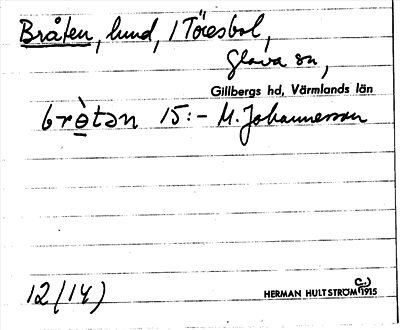 Bråten, lund, 1 Töresbol,
Glava sn,
Gillbergs hd, Värmlands län
brètən 15:- M. Johannesson
12(14)
HERMAN HULTSTRÖM 1915